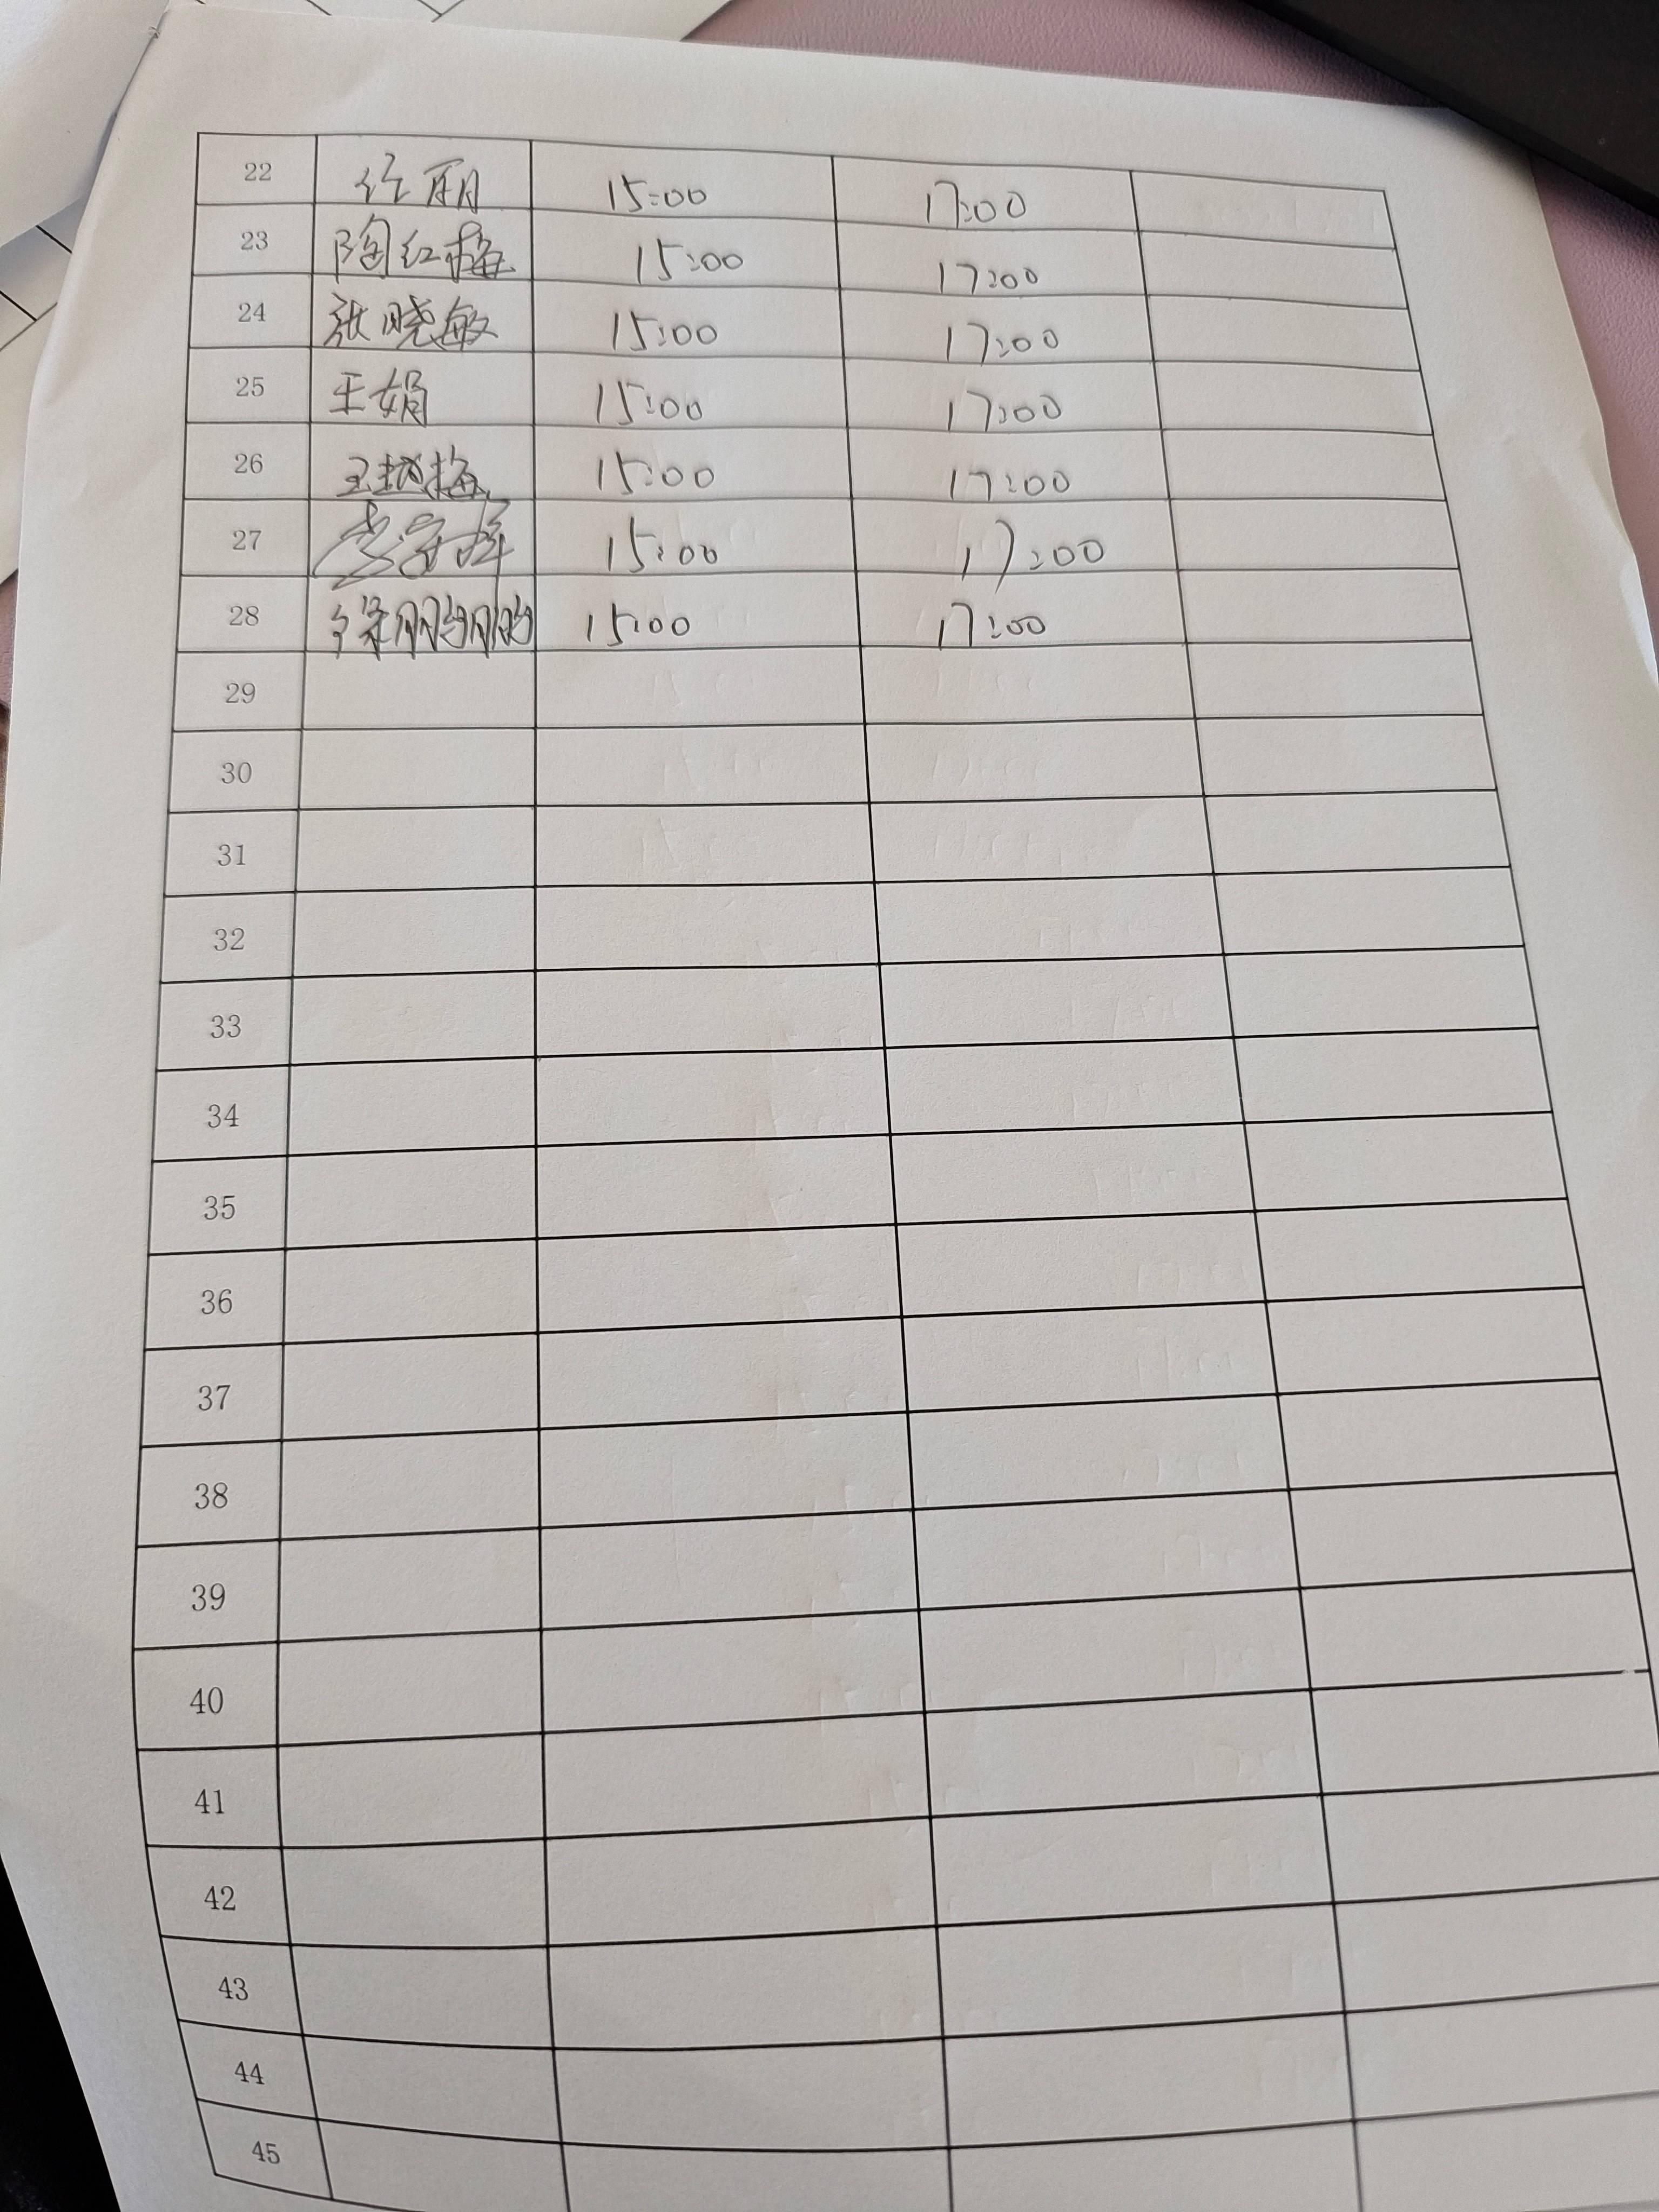 22 任丽 15:00 17:00
23 陶红梅 15:00 17:00
24 张晓敏 15:00 17:00
25 王娟 15:00 17:00
26 王越梅 15:00 17:00
27 15:00 17:00
28 徐鹏鹏 15:00 17:00
29
30
31
32
33
34
35
36
37
38
39
40
41
42
43
44
45